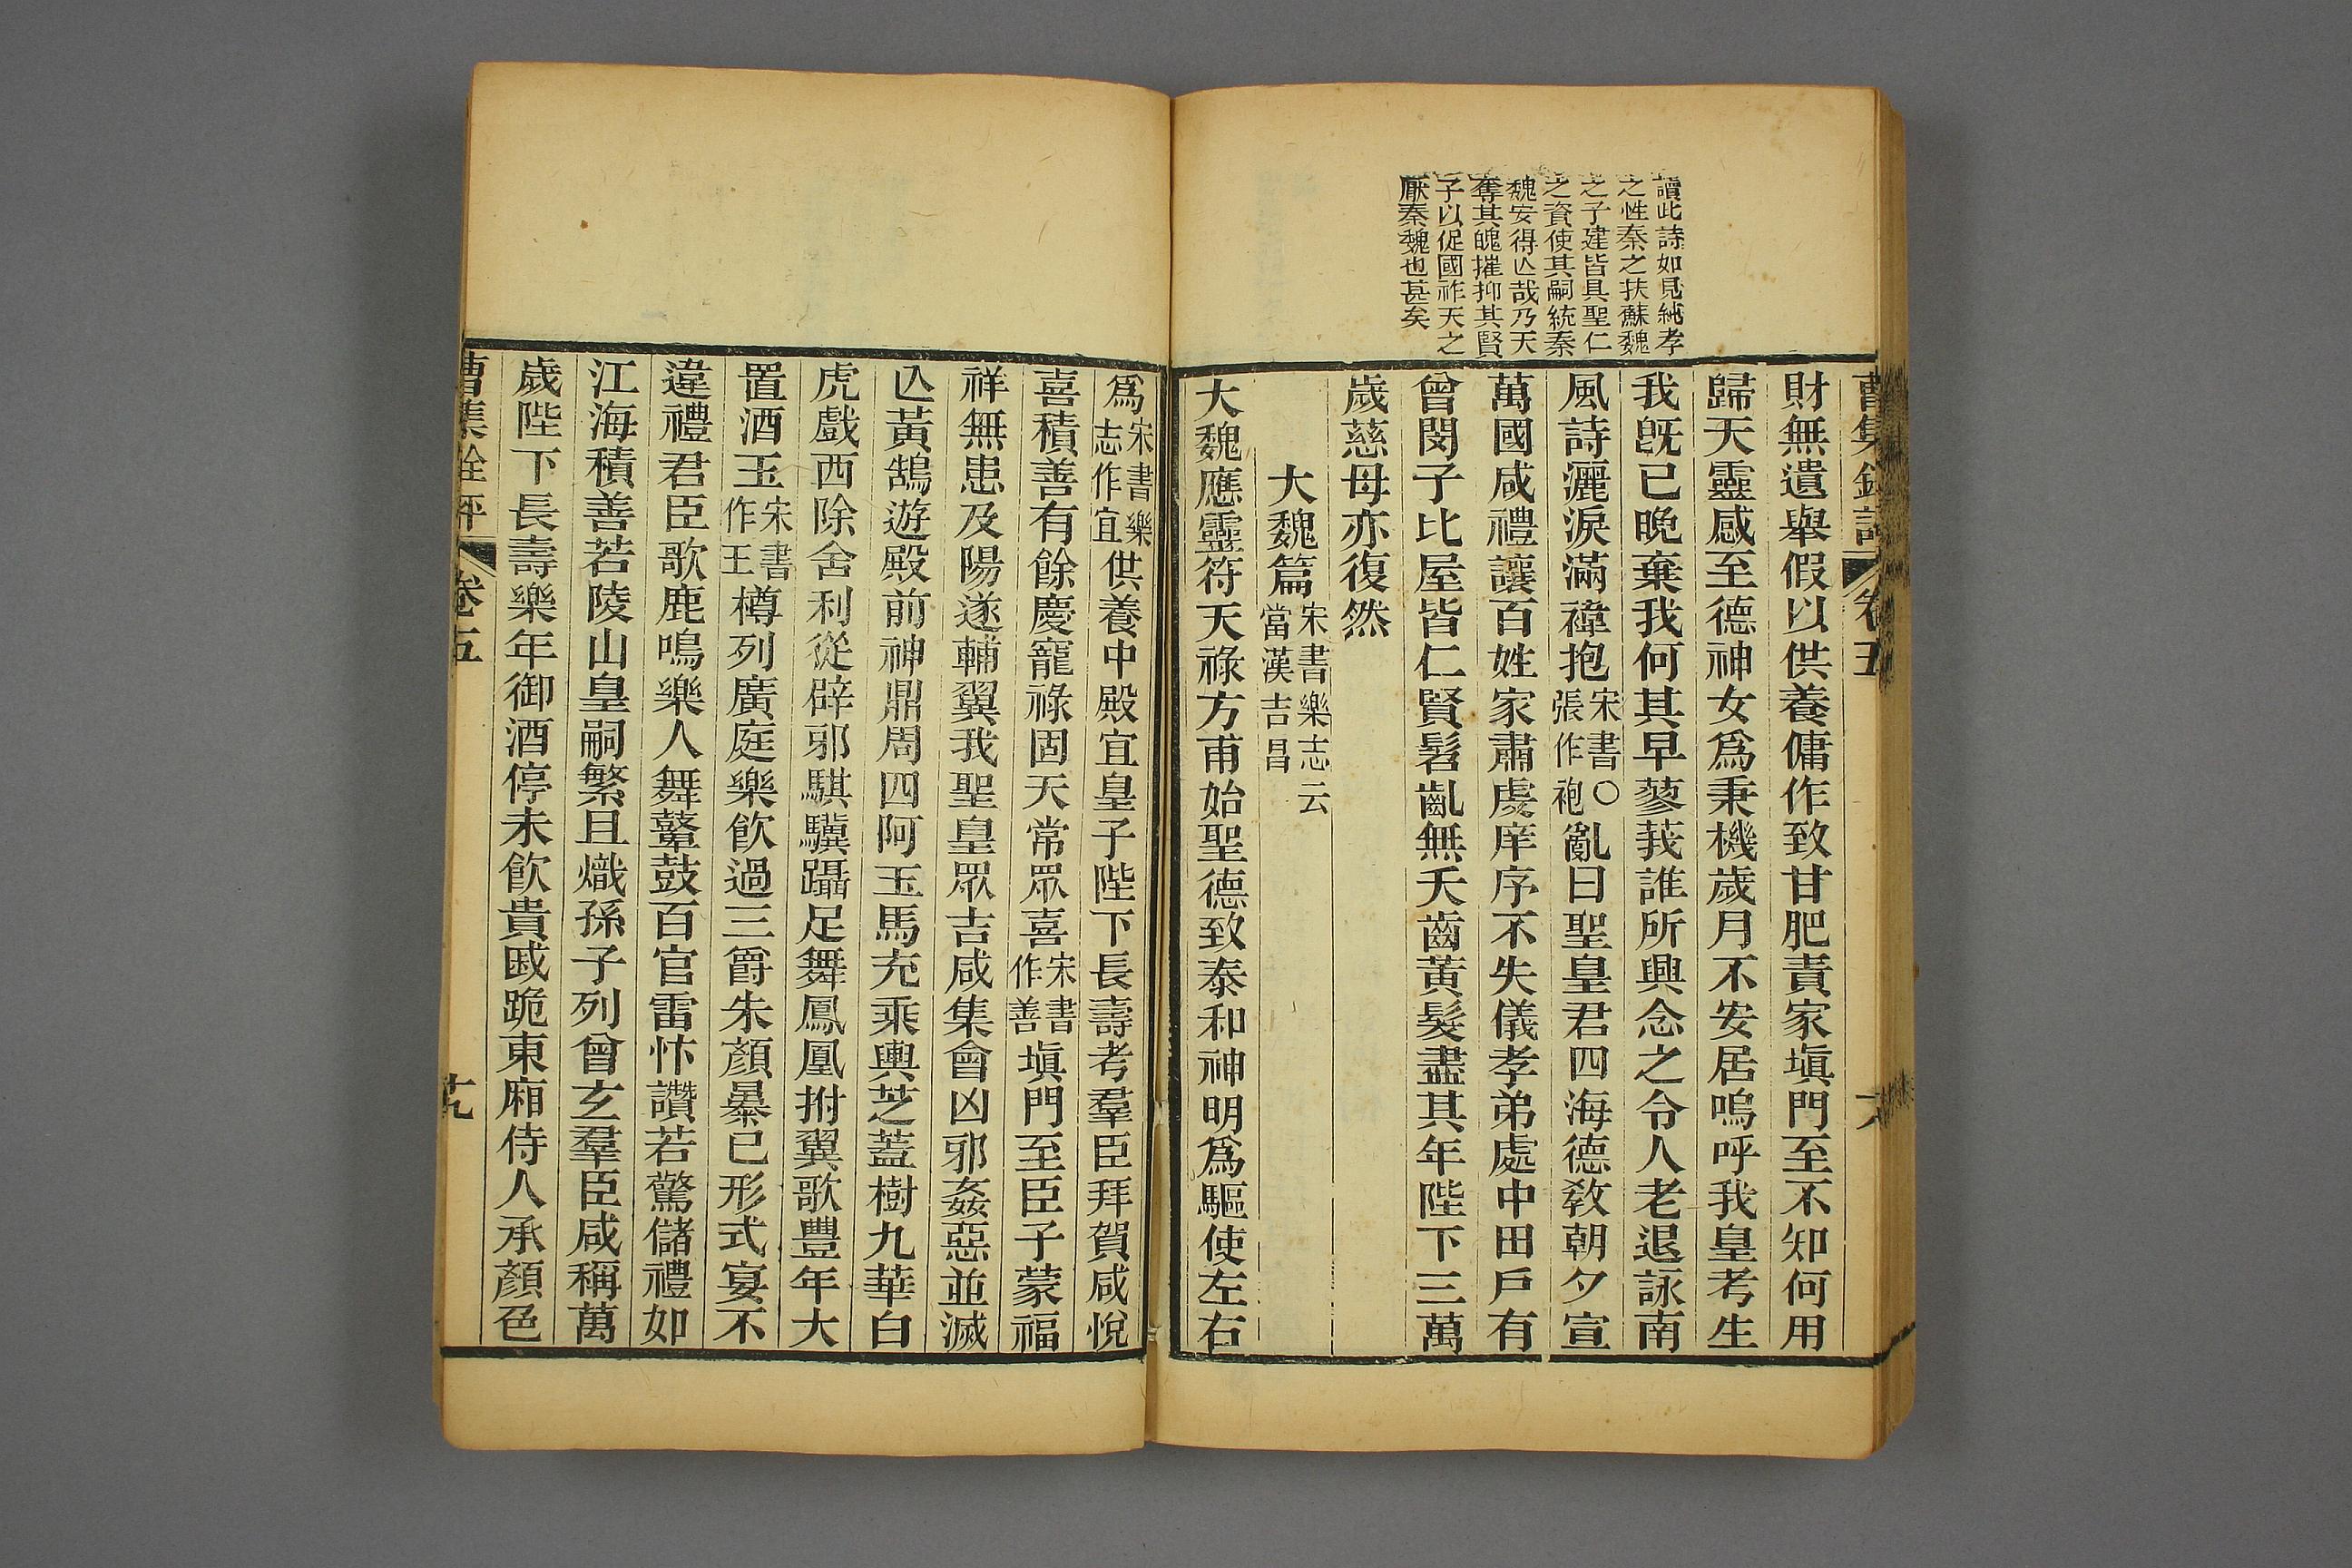 讀此詩如見純孝
之性秦之扶蘇魏
之子建皆具聖仁
之資使其嗣統秦
魏安得亾哉乃天
奪其魄摧抑其賢
子以促國祚天之
厭秦魏也甚矣
曹集銓評 卷五
財無遺舉假以供養傭作致甘肥責家塡門至不知何用
歸天靈感至德神女爲秉機歲月不安居嗚呼我皇考生
我旣已晚棄我何其早蓼莪誰所興念之令人老退詠南
風詩灑淚滿褘抱宋書○張作袍亂曰聖皇君四海德教朝夕宣
萬國咸禮讓百姓家肅虔庠序不失儀孝弟處中田戶有
曾閔子比屋皆仁賢髫齓無夭齒黃髮盡其年陛下三萬
歲慈母亦復然
大魏篇宋書樂志云當漢吉昌
大魏應靈符天祿方甫始聖德致泰和神明爲驅使左右
爲宋書樂志作宜供養中殿宜皇子陛下長壽考羣臣拜賀咸悅
喜積善有餘慶寵祿固天常眾喜宋書作善塡門至臣子蒙福
祥無患及陽遂輔翼我聖皇眾吉咸集會凶邪姦惡並滅
亾黃鵠遊殿前神鼎周四阿玉馬充乘輿芝蓋樹九華白
虎戲西除舍利從辟邪騏驥躡足舞鳳凰拊翼歌豐年大
置酒玉宋書作王樽列廣庭樂飮過三爵朱顏暴已形式宴不
違禮君臣歌鹿鳴樂人舞鼙鼓百官雷忭讚若驚儲禮如
江海積善若陵山皇嗣繁且熾孫子列曾玄羣臣咸稱萬
歲陛下長壽樂年御酒停未飮貴戚跪東廂侍人承顏色
曹集銓評 卷五 十九